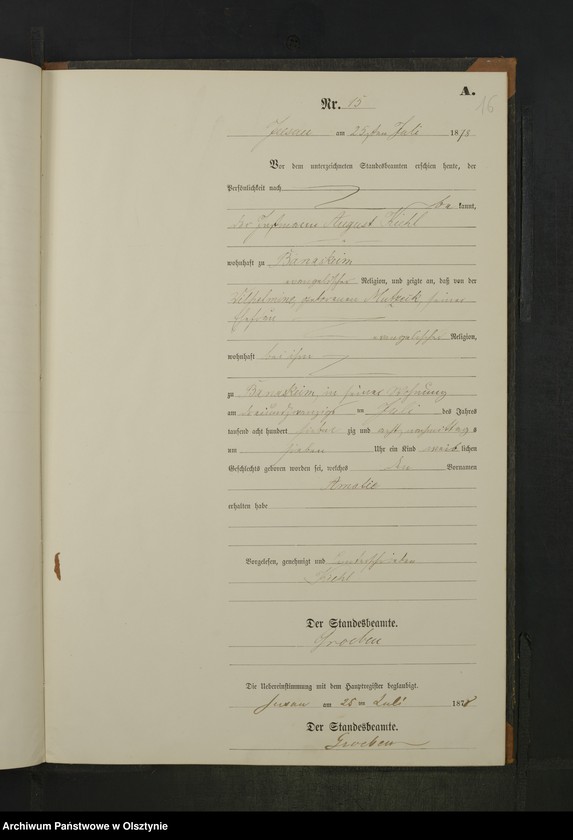 A.
16
Nr. 15
am 25ten Juli 1878
Vor dem unterzeichneten Standesbeamten erschien heute, der
Persönlichkeit nach
be kannt,
der August Kiehl
wohnhaft zu Bansheim
evangelischer Religion, und zeigte an, daß von der
Wilhelmine geborenen seiner
Ehefrau
evangelischer Religion,
wohnhaft bei ihm
zu Bansheim in seiner Wohnung
am dreiundzwanzigsten Juli des Jahres
tausend acht hundert siebenzig und acht, nachmittags
um sieben Uhr ein Kind weiblichen
Geschlechts geboren worden sei, welches den Vornamen
Amalie
erhalten habe
Vorgelesen, genehmigt und unterschrieben
Kiehl
Der Standesbeamte.
Groeben
Die Uebereinstimmung mit dem Hauptregister beglaubigt.
am 25ten Juli 1878
Der Standesbeamte.
Groeben
Archiwum Państwowe w Olsztynie